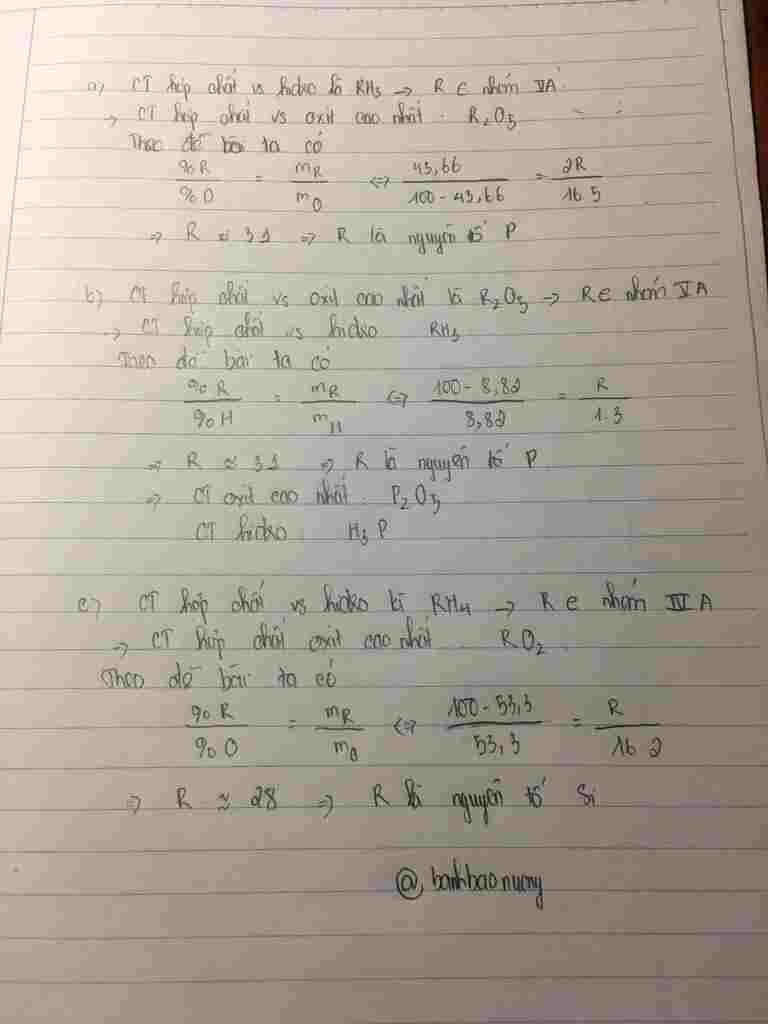 a) CT hợp chất vs hidro là RH₃ → R ∈ nhóm VA
→ CT hợp chất vs oxit cao nhất : R₂O₅
Theo đề bài ta có
%R / %O = mR / mO ⇔ 43,66 / 100 - 43,66 = 2R / 16.5
⇒ R ≈ 31 ⇒ R là nguyên tố P
b) CT hợp chất vs oxit cao nhất là R₂O₅ → R ∈ nhóm VA
→ CT hợp chất vs hidro RH₃
Theo đề bài ta có
%R / %H = mR / mH ⇔ 100 - 8,82 / 8,82 = R / 1.3
⇒ R ≈ 31 ⇒ R là nguyên tố P
⇒ CT oxit cao nhất : P₂O₅
CT hidro : H₃P
c) CT hợp chất vs hidro là RH₄ → R ∈ nhóm IVA
→ CT hợp chất oxit cao nhất RO₂
Theo đề bài ta có
%R / %O = mR / mO ⇔ 100 - 53,3 / 53,3 = R / 16.2
⇒ R ≈ 28 ⇒ R là nguyên tố Si
@banhbaonuong